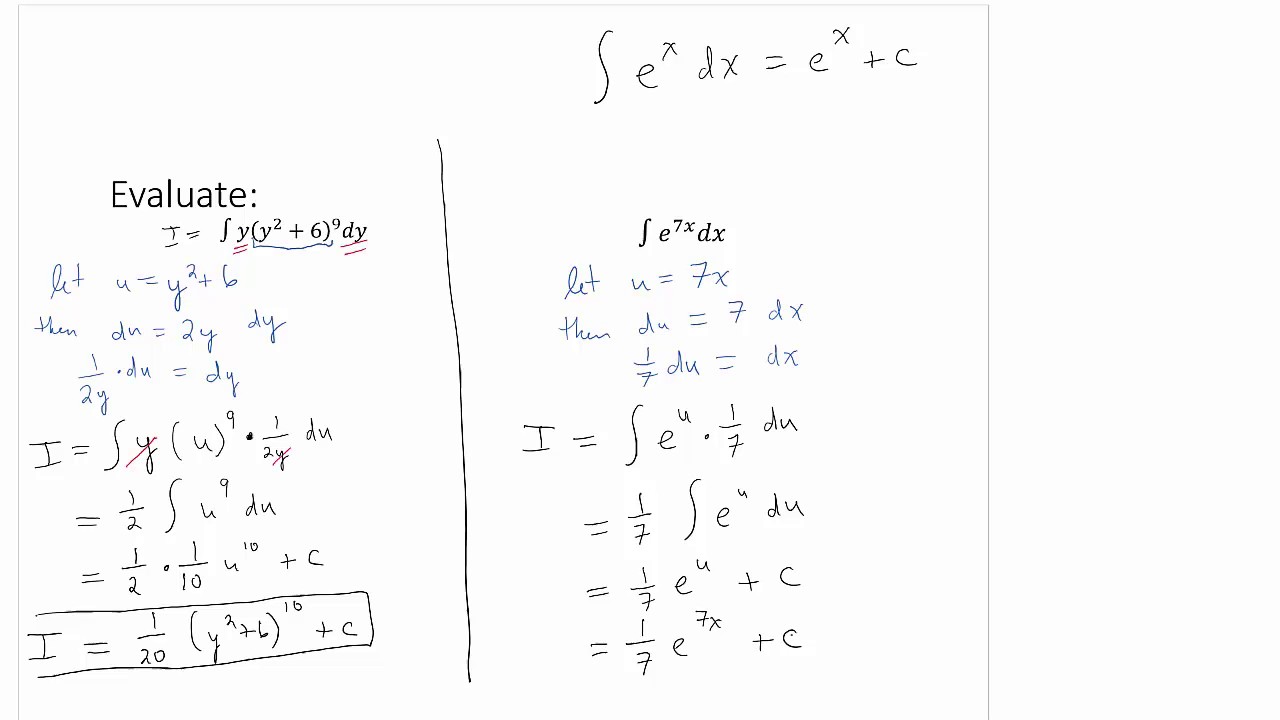 ∫ e^x dx = e^x + c
Evaluate:
I = ∫ y(y² + 6)⁹dy
let u = y² + 6
then du = 2y dy
1/2y · du = dy
I = ∫ y (u)⁹ · 1/2y du
= 1/2 ∫ u⁹ du
= 1/2 · 1/10 u¹⁰ + c
I = 1/20 (y²+6)¹⁰ + c
∫ e^{7x} dx
let u = 7x
then du = 7 dx
1/7 du = dx
I = ∫ e^u · 1/7 du
= 1/7 ∫ e^u du
= 1/7 e^u + c
= 1/7 e^{7x} + c